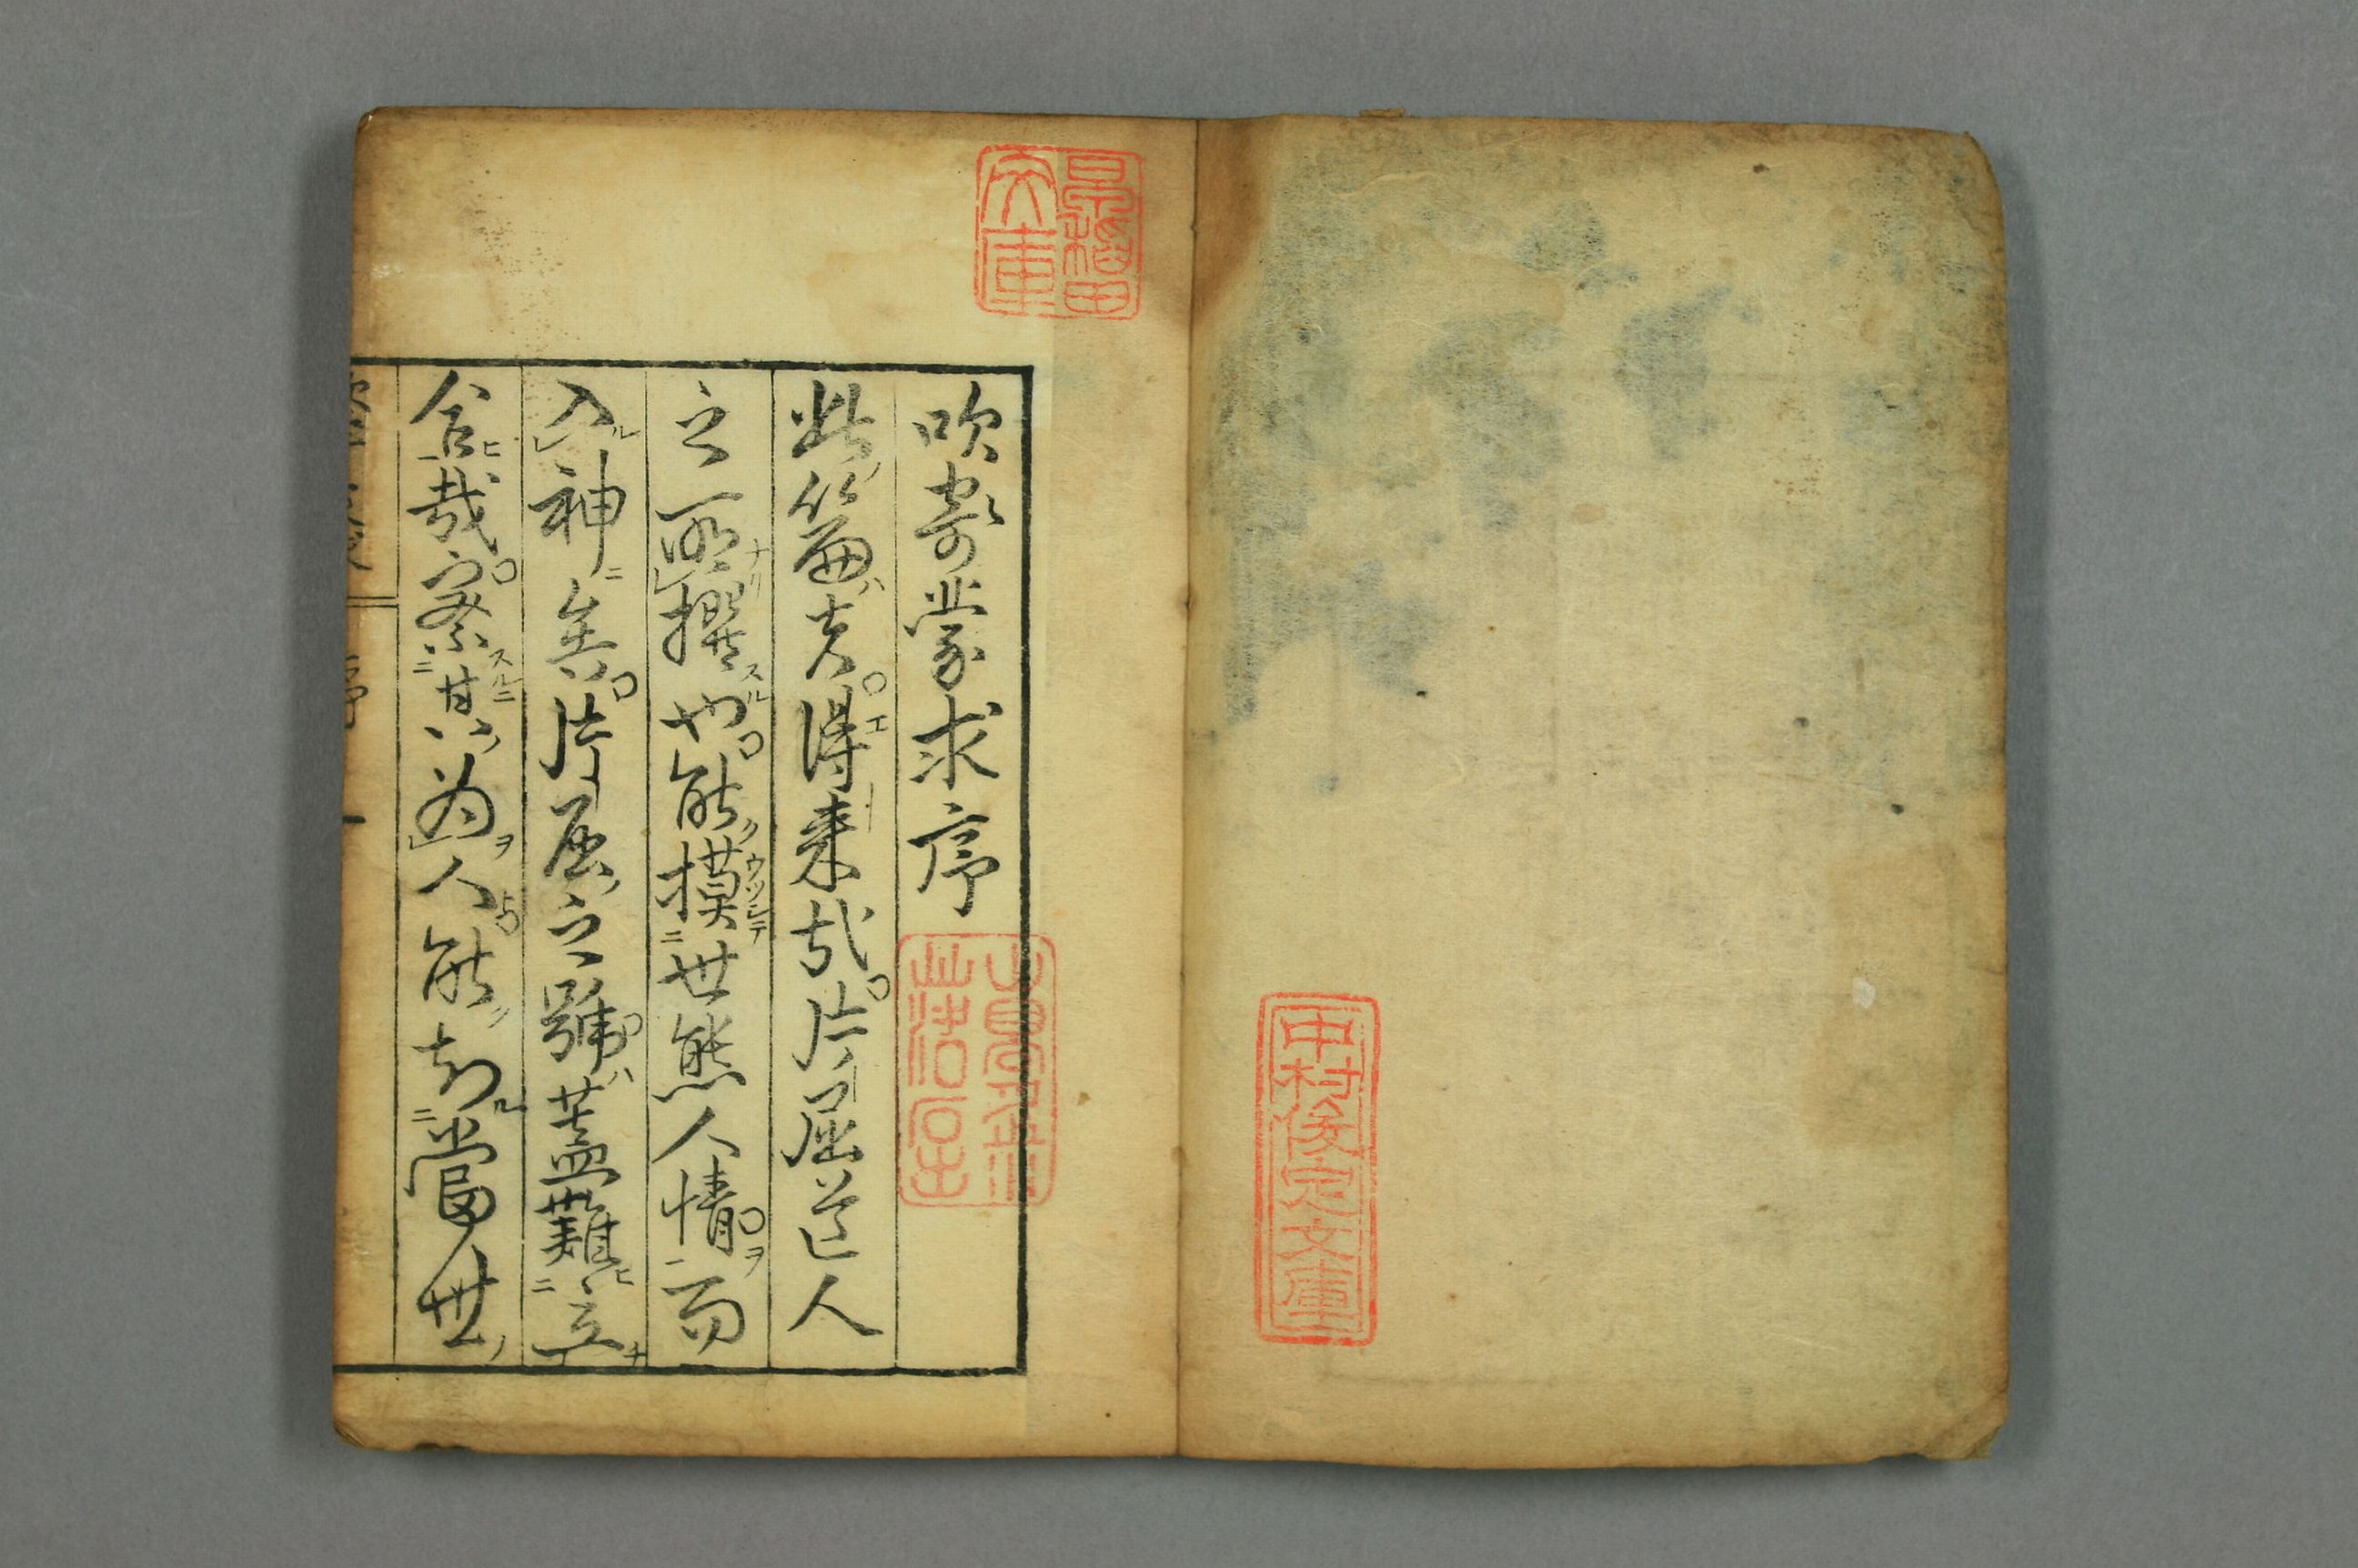 中村俊定文庫
早稲田文庫
吹寄蒙求序
此篇者得来哉片屈道人
之所撰也能摸世熊人情而
入神矣片屈之號蓋難立
合哉察其為人能知當世